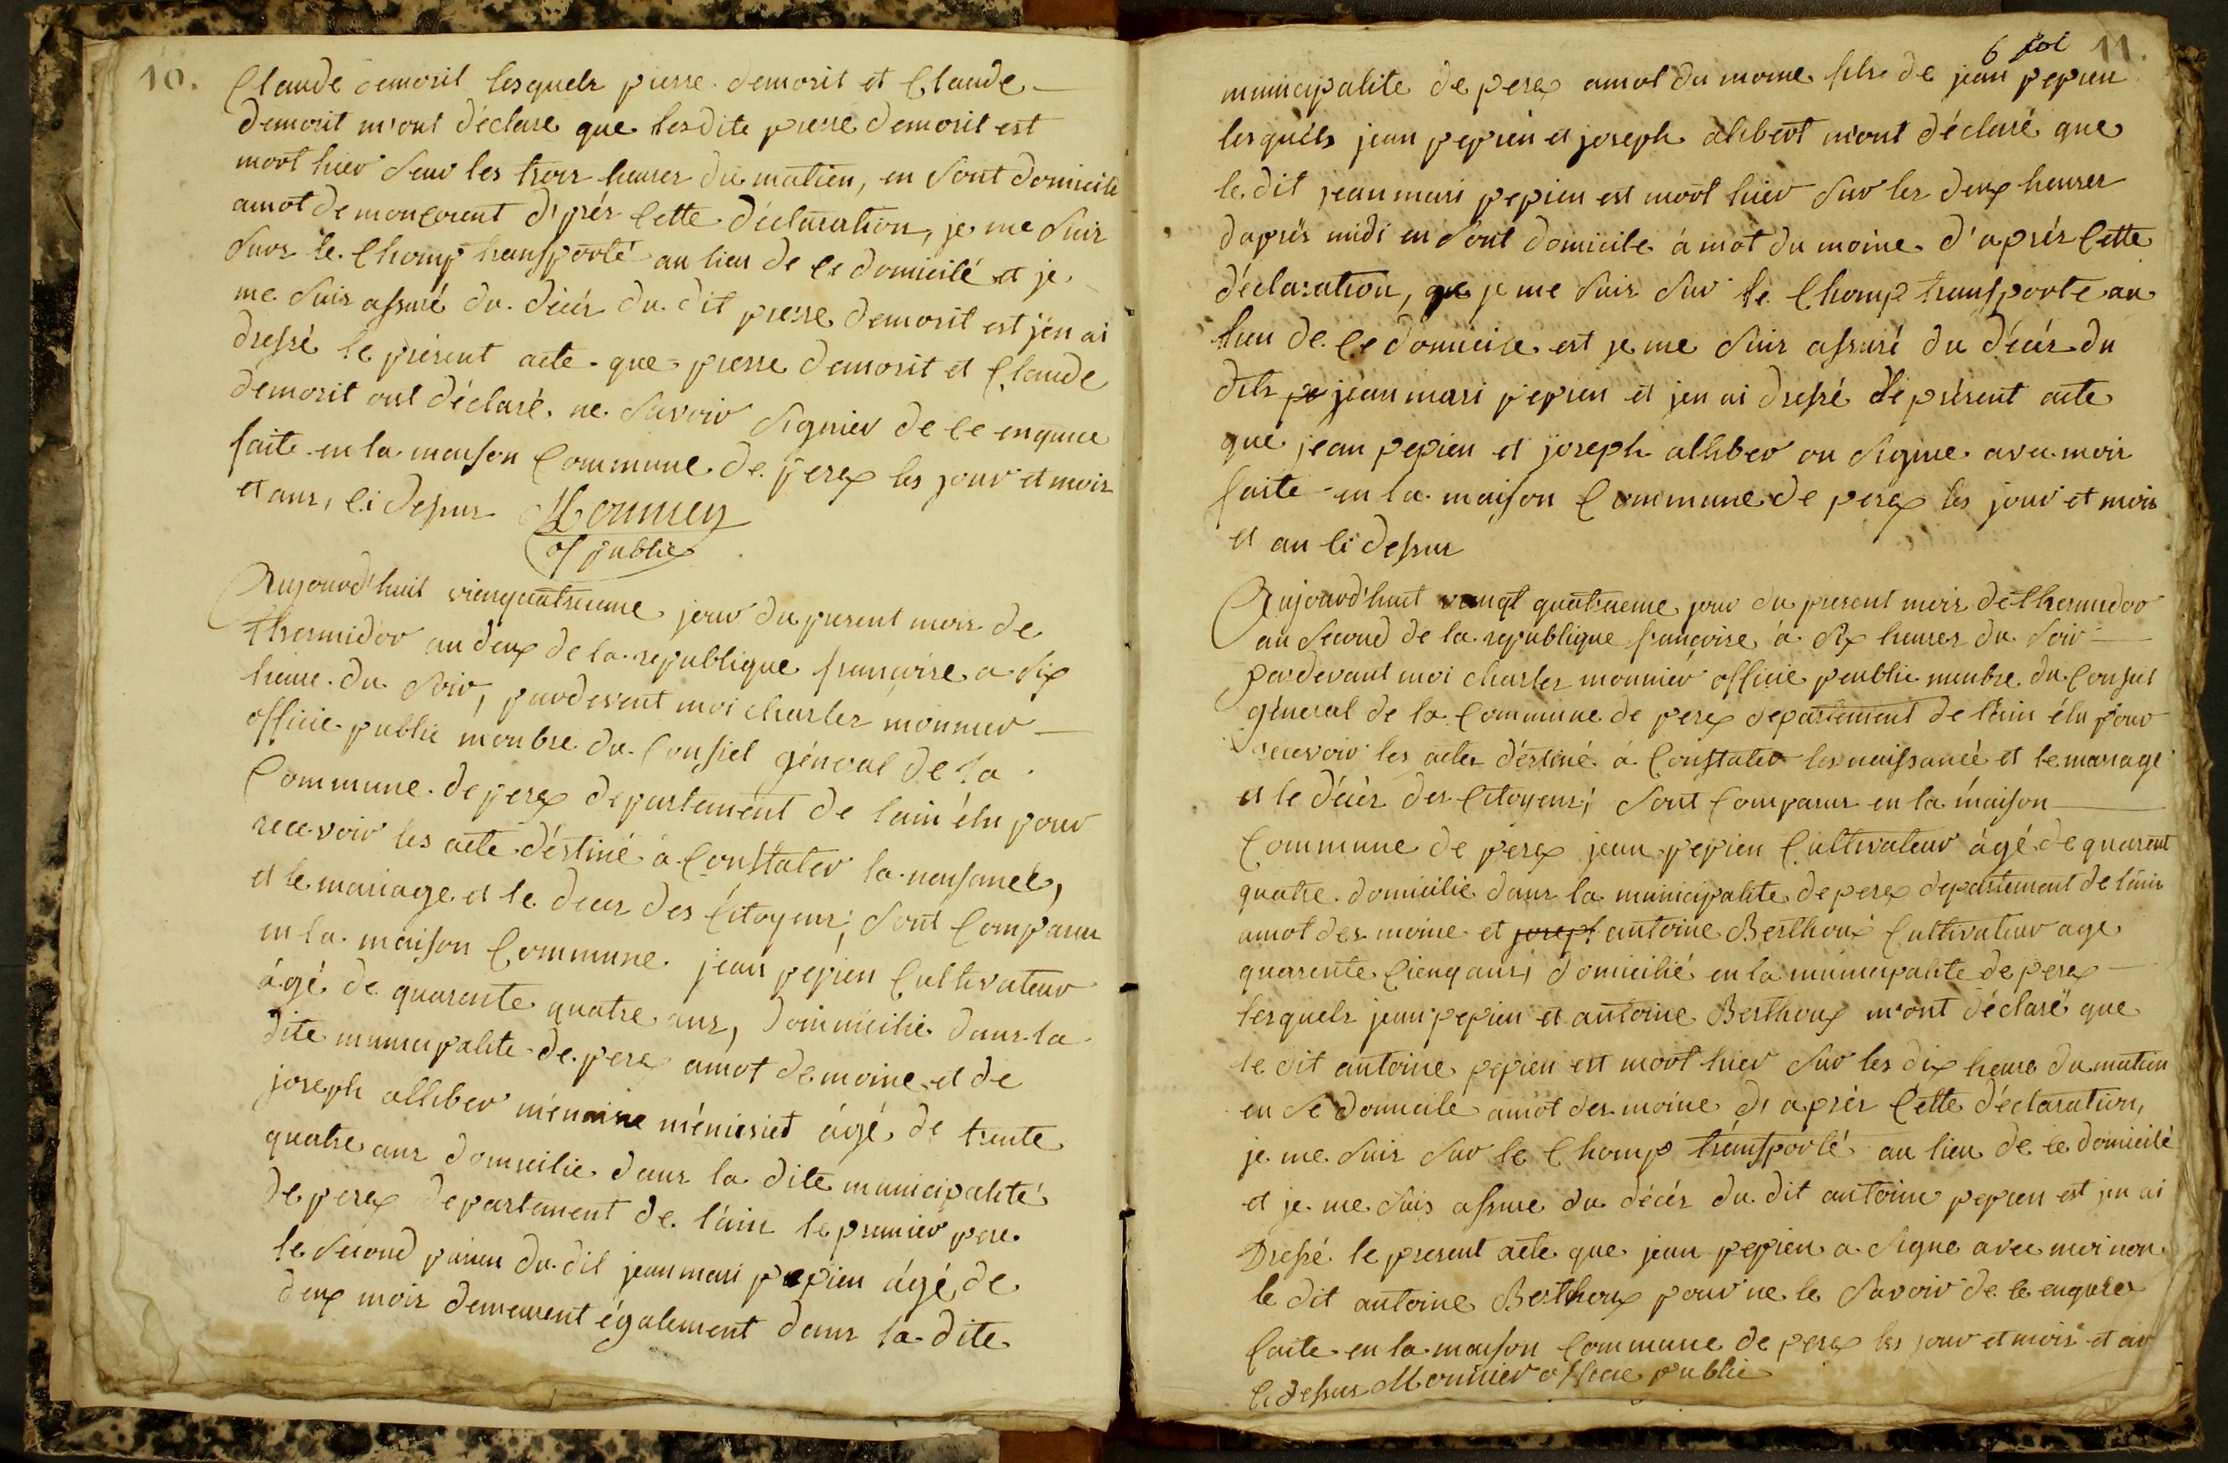 10.
Claude demorit lesquels pierre demorit et Claude
demorit m'ont déclare que lesdite pierre demorit est
mort hier seur les trois heures du matien, en sont domicile
amot de moncorent d'prés Cette déclaration, je me suis
suor le Chomp transporté au lieu de ce domicilé et je
me suis assuré du décés du dit pierre demorit est j'en ai
dressé le présent acte que pierre demorit et Claude
demorit ont déclaré ne savoir signier de ce enquere
faite en la maison Commune de perex les jour et mois
et ans, ci dessus Monnier
of public
Aujourd'huit viengquatrieme jour du present mois de
thermidor an deux de la republique françoise a six
heure du soir, pardevent moi charles monnier
officie public menbre du Consiel géneral de la
Commune de perex departement de lain élu pour
recevoir les acte déstiné a Constater la naisance,
et le mariage et le deces des Citoyens; sont Comparu
en la maison Commune jean pepien Cultivateur
ágé de quarente quatre ans, domicilie dans la
dite municipalite de perex amot de moine et de
joseph alliber ménusiet ágé de trente
quatre ans domicilie dans la dite municipalité
de perex departement de l'ain le premier pere
le second parien du dit jean mari pepien ágé de
deux mois demeurent également dans la dite
6 fol 11.
municipalite de perex amot du moine fils de jean pepien
lesquels jean pepien et joseph alibert m'ont déclaré que
le dit jean mari pepien est mort hier sur les deux heures
daprés midi en sont domicile á mot du moine d'aprés Cette
déclaration, que je me suis sur le Chomp transporte au
lieu de ce domicile est je me suis assuré du décés du
dits pe jean mari pepien et jen ai dressé le présent acte
que jean pepien et joseph alliber on signie avec moir
faite en la maison Commune de perex les jour et mois
et an ci dessus
Aujourd'huit vengt quatrieme jour du present mois de thermidor
an second de la republique françoise á six heures du soir
pardevant moi charles monnier officie peublic menbre du Consiel
géneral de la Commune de perex departement de l'ain élu pour
recevoir les actes déstiné á Constater les naissancé et le mariage
et le décés des Citoyens; sont Comparus en la maison
Commune de perex jean pepien Cultivateur ágé de quarent
quatre domicilie dans la municipalite de perex departement de l'ain
amot des moine et josept antoine Berthoux Cultivateur age
quarente Cienq ans, domicilié en la municipalite de perex
lesquels jean pepien et antoine Berthoux m'ont déclaré que
le dit antoine pepien est mort hier sur les dix heure du matien
en se domicilé amot des moine d'aprés Cette déclaration,
je me suis sur le Chomp transporté au lieu de ce domicilé
et je me suis assure du décés du dit antoine pepien est jen ai
Dressé le present acte que jean pepien a signe avec moi non
le dit antoine Berthoux pour ne le savoir de ce enquere
faite en la maison Commune de perex les jour et mois et an
ci dessus Monnier officie public